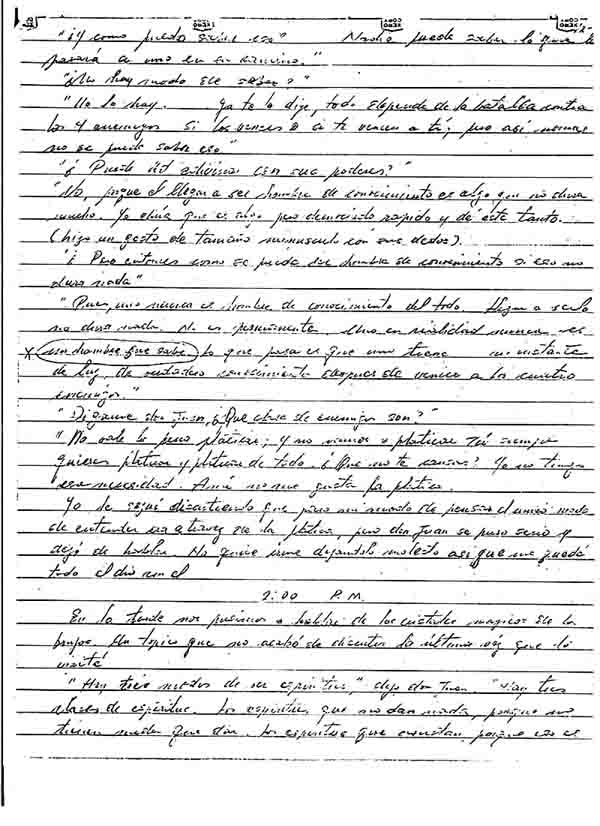 "¿Y como puedes decir eso" Nadie puede saber lo que le
pasará a uno en su camino."
"¿No hay modo de saber?"
"No lo hay. Ya te lo dije, todo depende de la batalla contra
los 4 enemigos si los vences o si te vencen a tí, pero así nomas
no se puede saber eso"
"¿Puede Ud adivinar con sus poderes?"
"No, porque el llegar a ser hombre de conocimiento es algo que no dura
mucho. Yo diría que es algo pero demasiado rapido y de este tanto.
(hizo un gesto de tamaño minusculo con sus dedos).
"¿Pero entonces como se puede ser hombre de conocimiento si eso no
dura nada"
"Pues, uno nunca es hombre de conocimiento del todo. Llegar a serlo
no dura nada. No es permanente. Uno en realidad nunca es
x un hombre que sabe. Lo que pasa es que uno tiene un instante
de luz, de verdadero conocimiento despues de vencer a los cuatro
enemigos."
"Digame don Juan, ¿Que clase de enemigos son?"
"No vale la pena platicar; y no vamos a platicar Tú siempre
quieres platicar y platicar de todo. ¿Que no te cansas? Yo no tengo
esa necesidad. A mi no me gusta la platica.
Yo le seguí discutiendo que para mi modo de pensar el unico modo
de entender era a travez de la platica, pero don Juan se puso serio y
dejó de hablar. No quise irme dejandolo molesto asi que me quedé
todo el dia con el
2:00 P.M.
En la tarde nos pusimos a hablar de los cristales magicos de la
. Un topico que no acabó de discutir la última vez que lo
visité
"Hay tres modos de ser espiritus," dijo don Juan. "Hay tres
clases de espiritus. Los espiritus que no dan nada, porque no
tienen nada que dar. Los espiritus que asustan, porque eso es